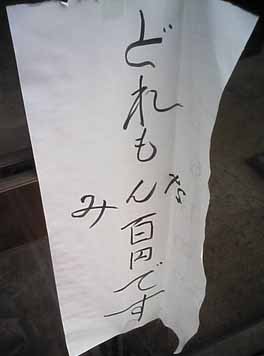 どれもみんな百円です